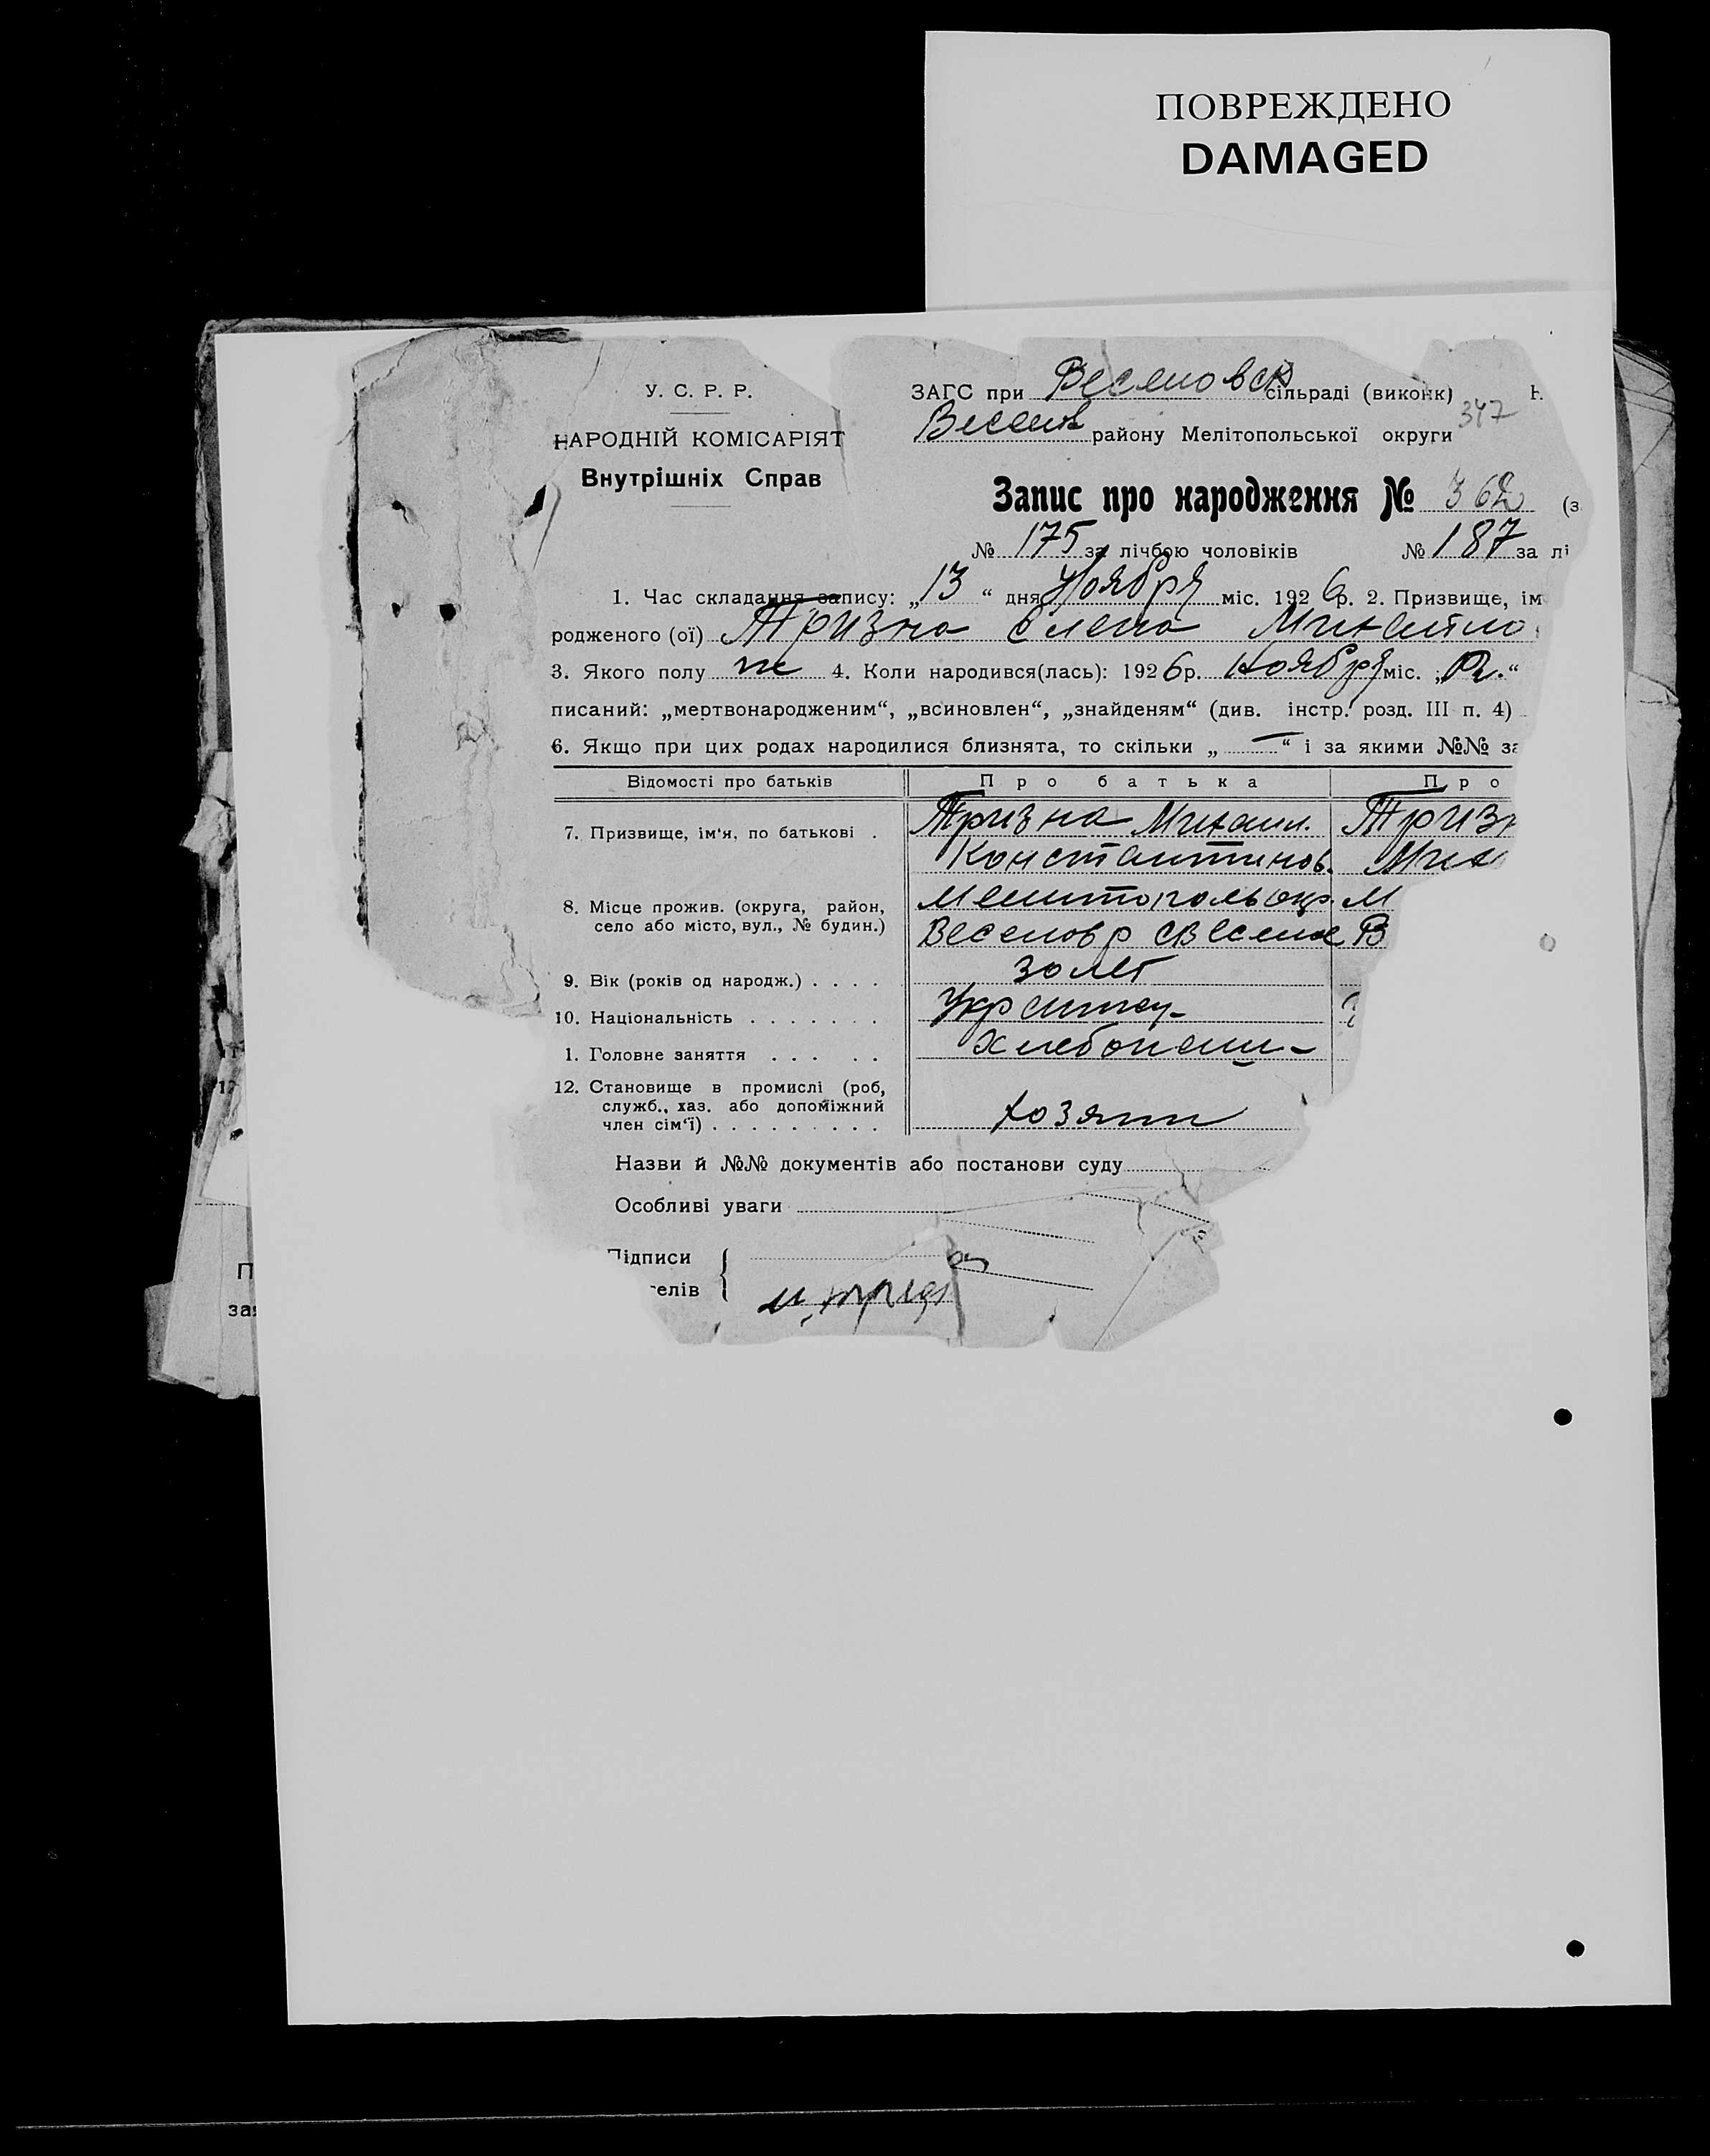 ПОВРЕЖДЕНО
DAMAGED
У. С. Р. Р.
НАРОДНІЙ КОМІСАРІЯТ
Внутрішніх Справ
ЗАГС при Веселовск сільраді (виконк)
347
Весел району Мелітопольської округи
Запис про народження № 362 (з
№ 175 за лічбою чоловіків № 187 за лі
1. Час складання запису: „13“ дня Ноября міс. 1926 р. 2. Призвище, ім
родженого (ої) Тризна Елена Михайло
3. Якого полу ж 4. Коли народився(лась): 1926 р. Ноября міс.
писаний: „мертвонародженим“, „всиновлен“, „знайденям“ (див. інстр. розд. III п. 4)
6. Якщо при цих родах народилися близнята, то скільки „—“ і за якими №№ за
Відомості про батьків Про батька Про
7. Призвище, ім'я, по батькові . Тризна Михаил. Тризн
Константинов. Мих
8. Місце прожив. (округа, район, Мелитополь окр. М
село або місто, вул., № будин.) Веселов р с Веселое В
9. Вік (років од народж.) . . . . 30 лет
10. Національність . . . . . . . Украинец
1. Головне заняття . . . . . Хлебопаш
12. Становище в промислі (роб,
служб., хаз. або допоміжний
член сім'ї) . . . . . . . . . хозяин
Назви й №№ документів або постанови суду
Особливі уваги
Підписи
елів
П
за